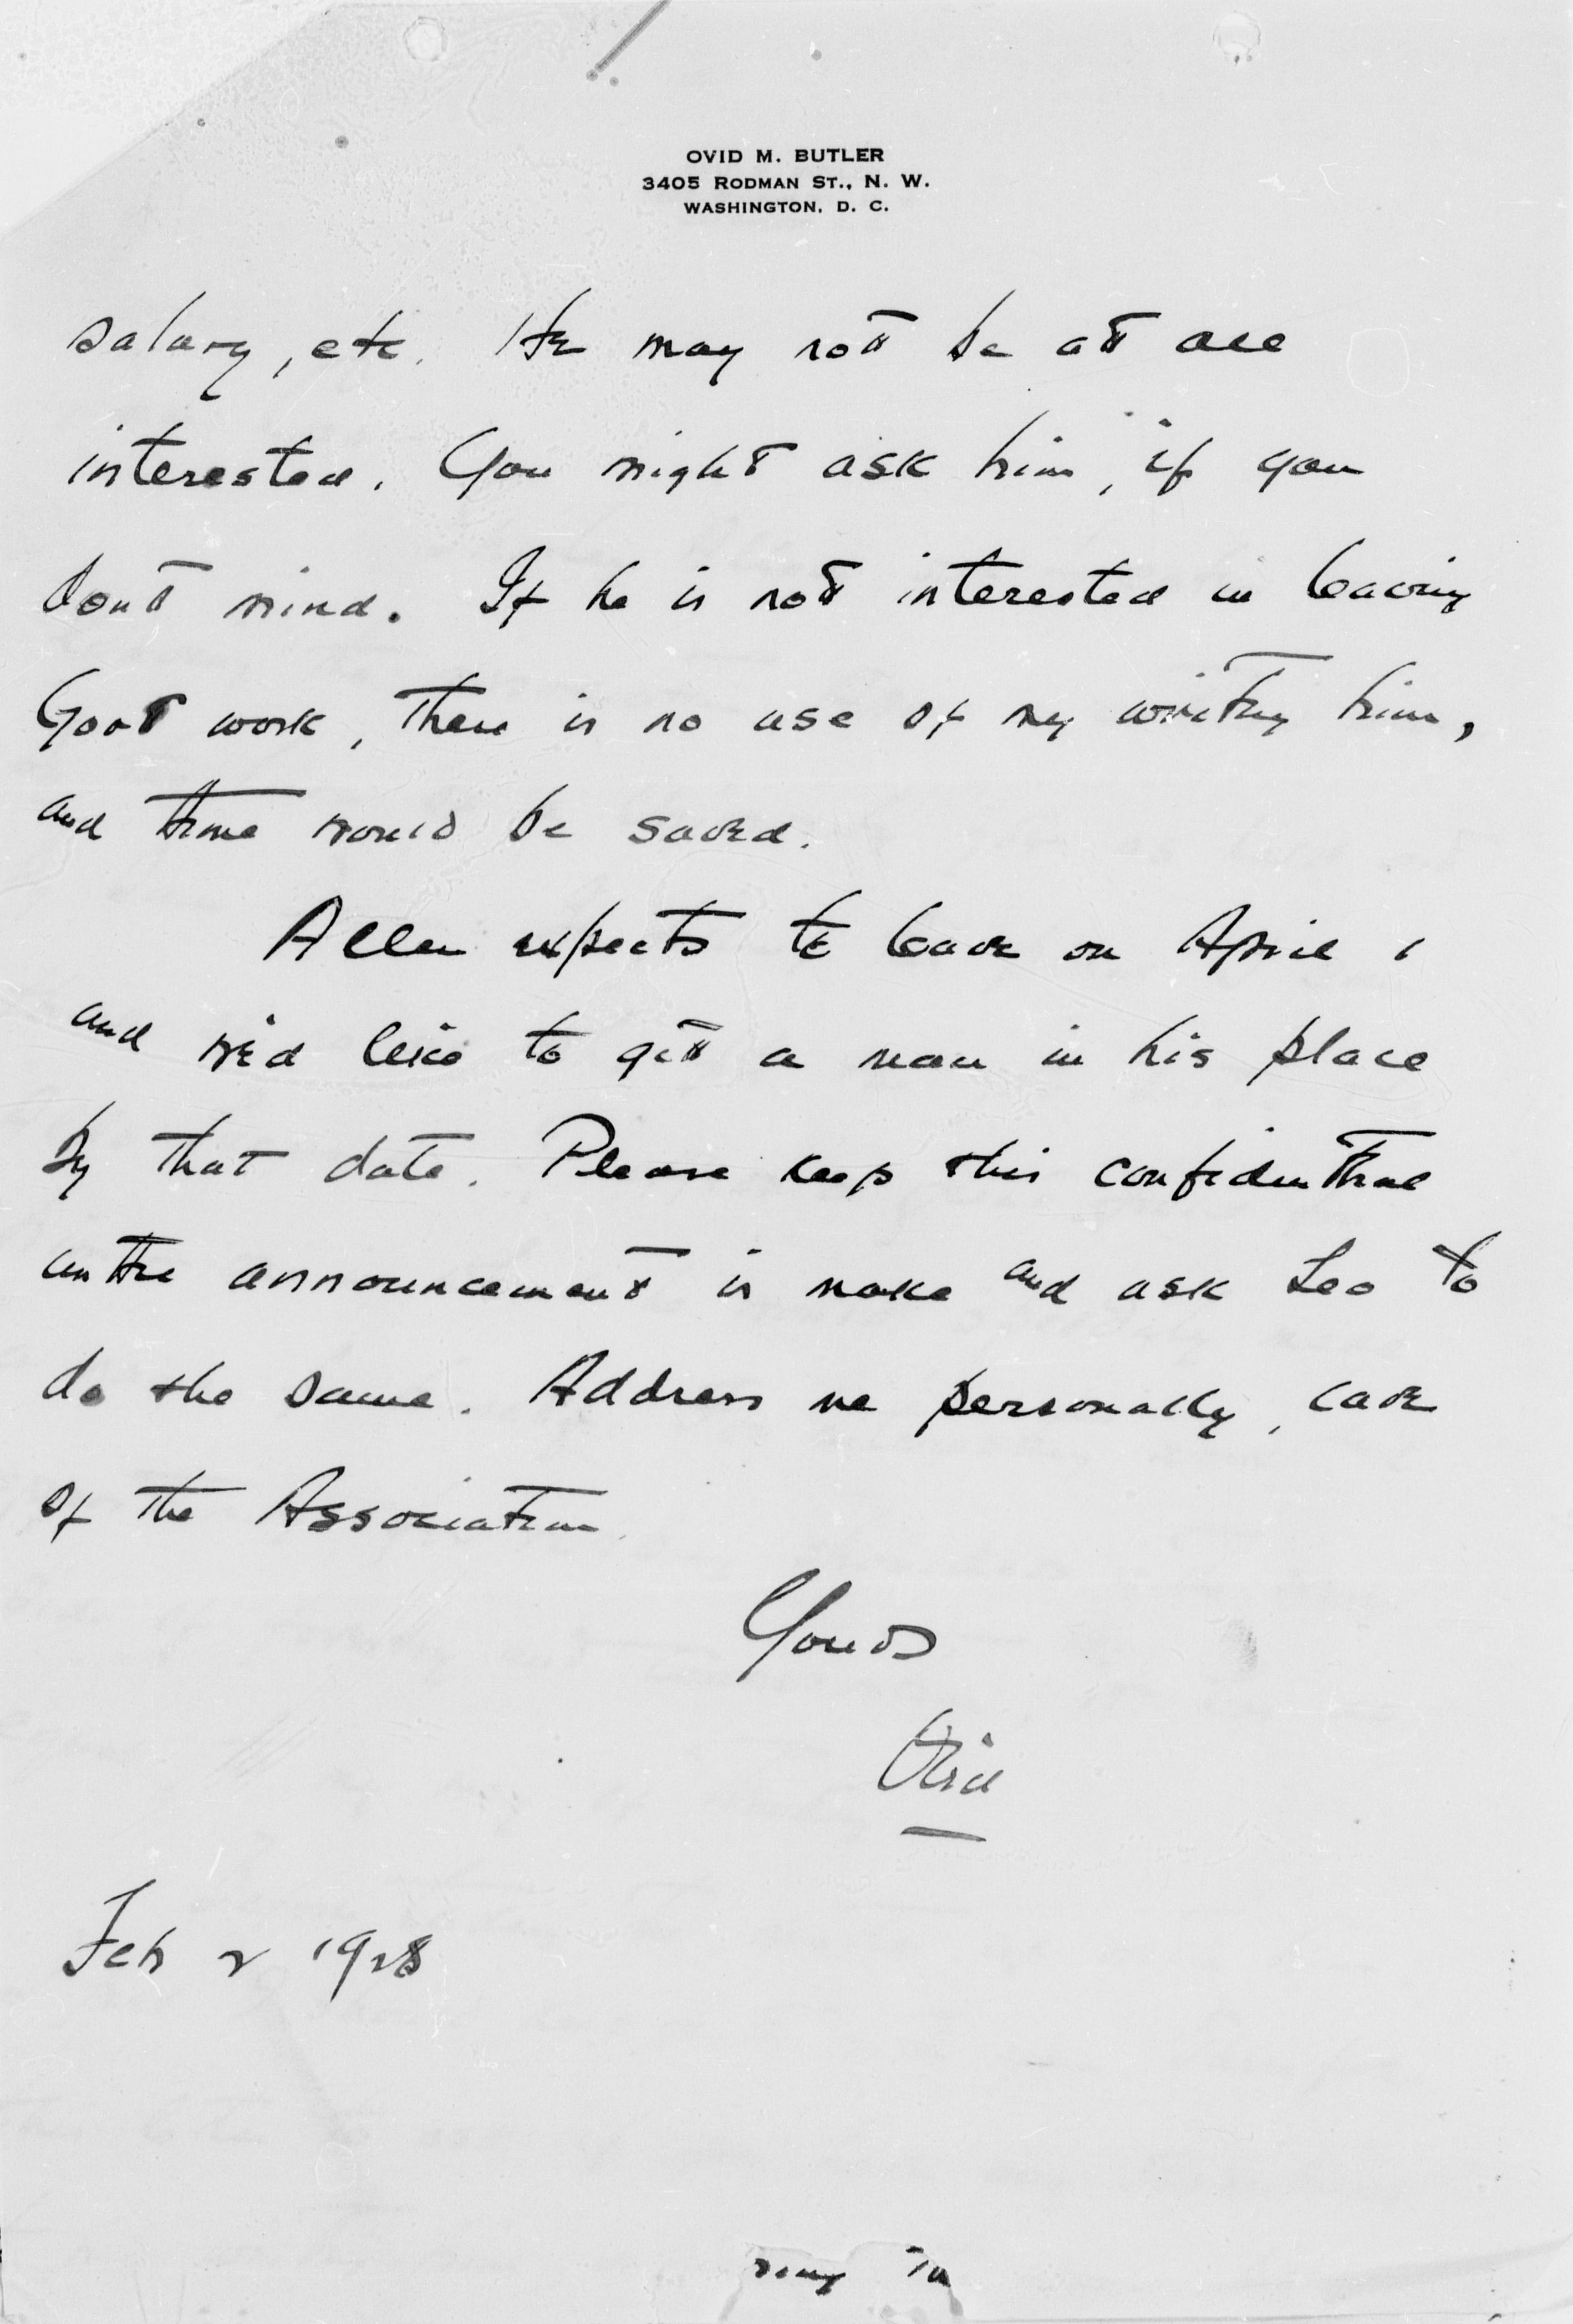 OVID M. BUTLER
3405 RODMAN ST., N. W.
WASHINGTON, D. C.
salary, etc. He may not be at all
interested. You might ask him, if you
dont mind. If he is not interested in leaving
Govt work, there is no use of my writing him,
and time would be saved.
Allen expects to leave on April 1
and we'd like to get a man in his place
by that date. Please keep this confidential
until announcement is make and ask Leo to
do the same. Address me personally, care
of the Association.
Yours
Ovid
Feb 2 1928